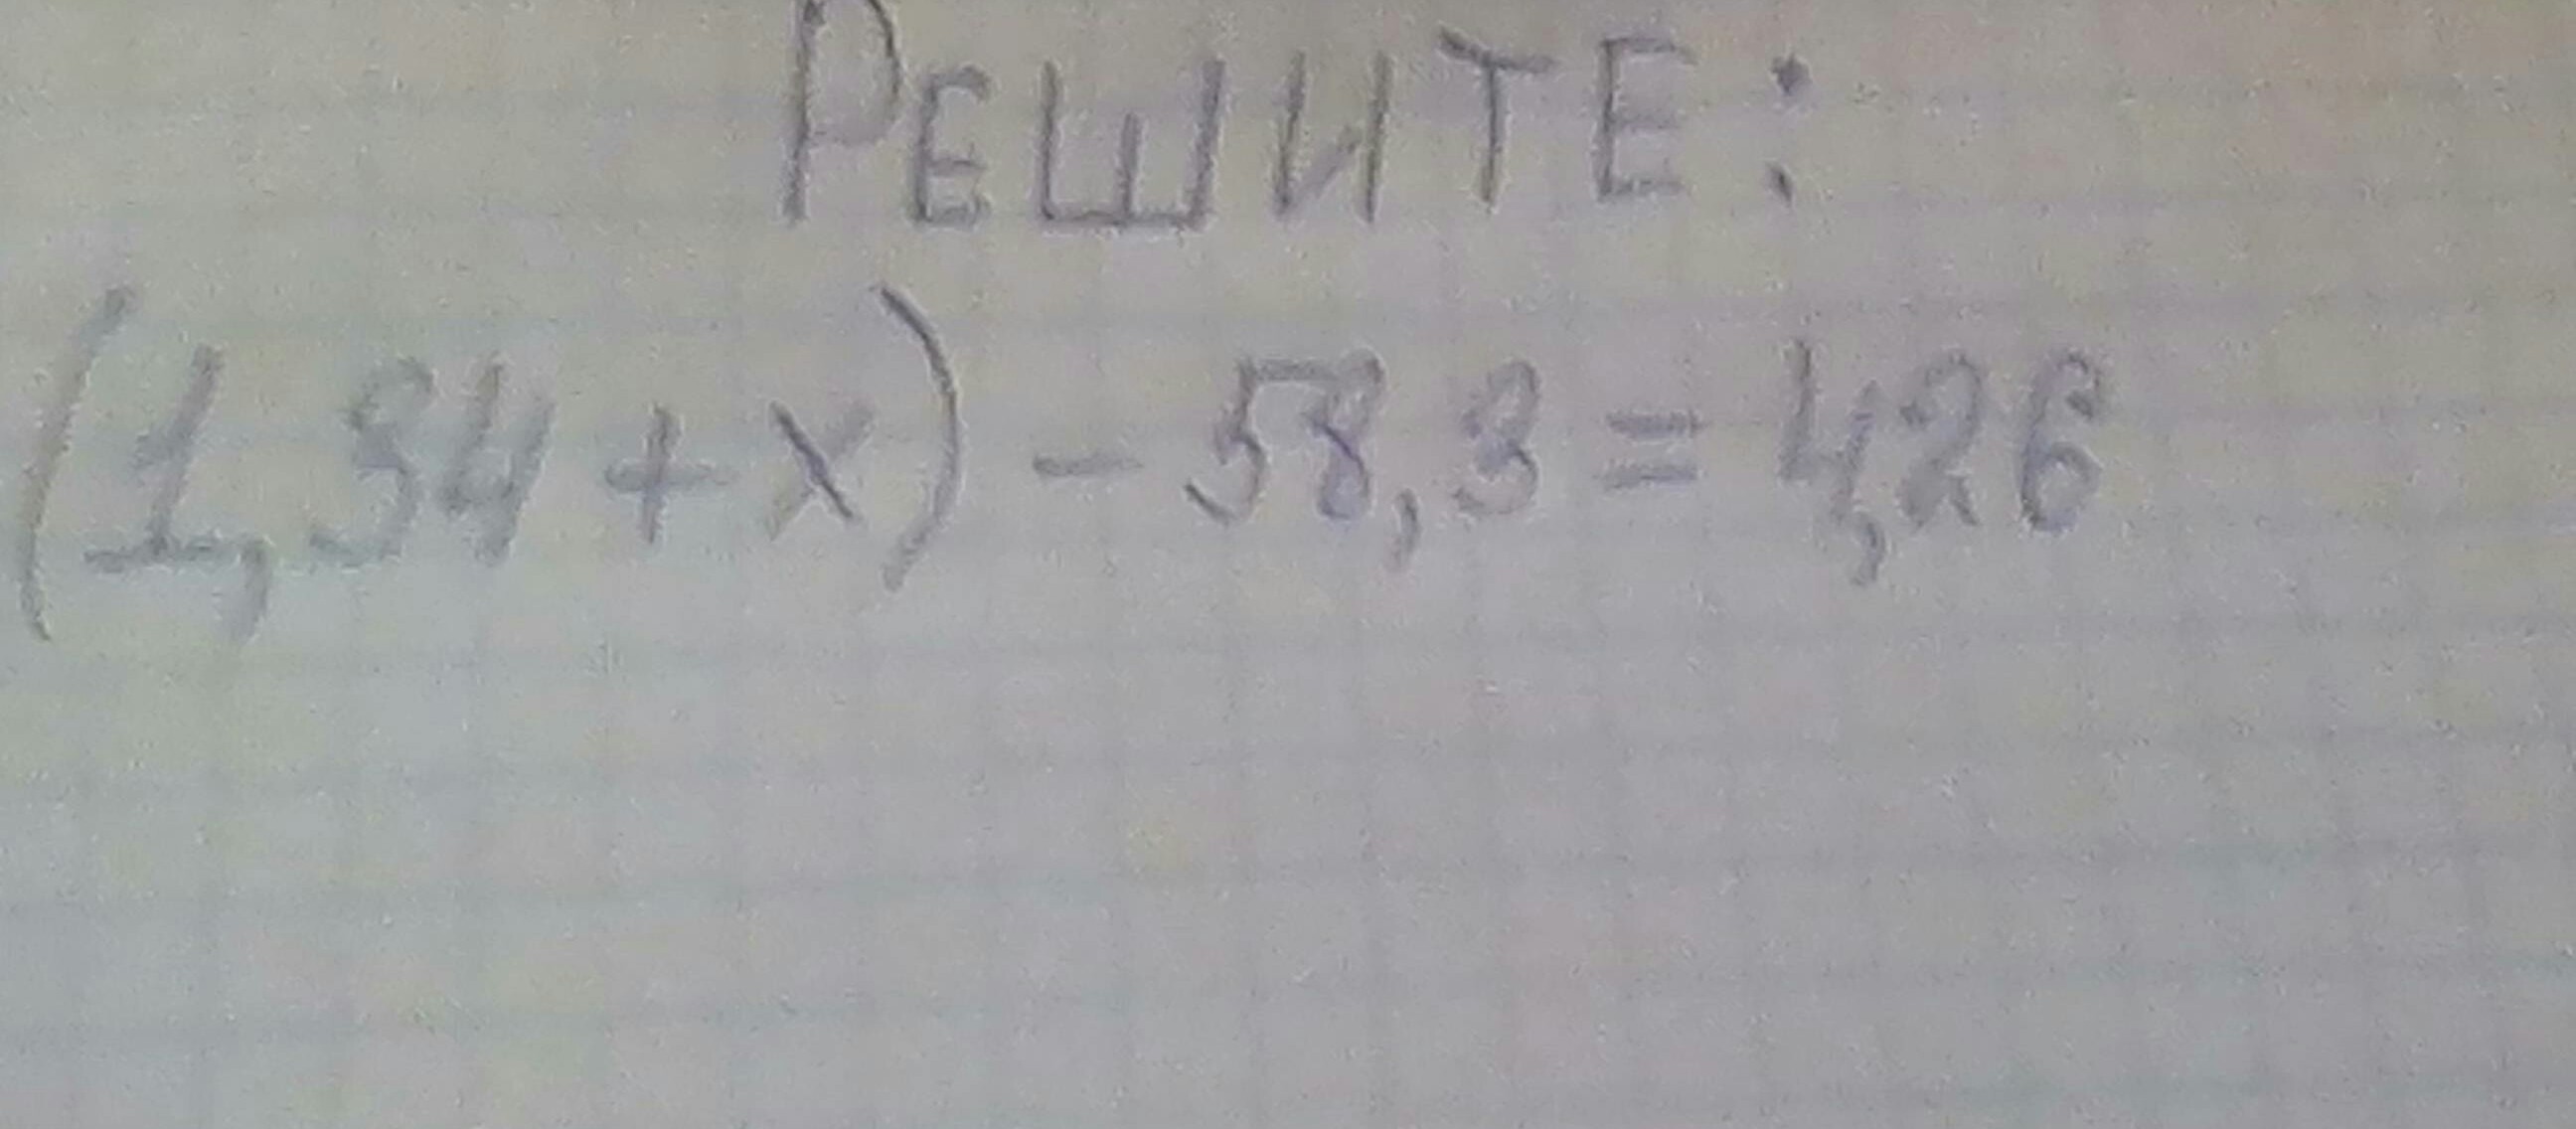 РЕШИТЕ:
(1,34+x)-58,3=4,26